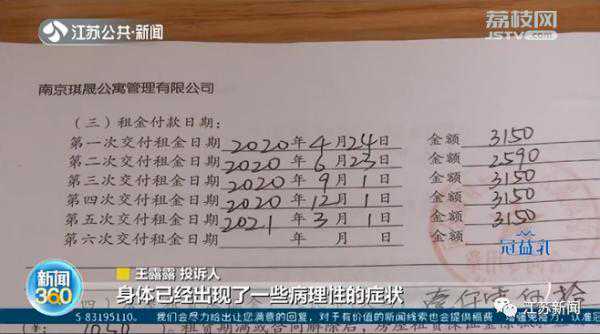 江苏公共·新闻
荔枝网
JSTV.COM
南京琪晟公寓管理有限公司
（三）租金付款日期：
第一次交付租金日期 2020年4月24日 金额 3150
第二次交付租金日期 2020年6月23日 金额 2590
第三次交付租金日期 2020年9月1日 金额 3150
第四次交付租金日期 2020年12月1日 金额 3150
第五次交付租金日期 2021年3月1日 金额 3150
第六次交付租金日期 年 月 日 金额
冠益乳
新闻
360
王露露 投诉人
身体已经出现了一些病理性的症状
江苏新闻
S 83195110。 我们会尽力给出让您满意的回复，对于有价值的新闻线索也会提供稿费